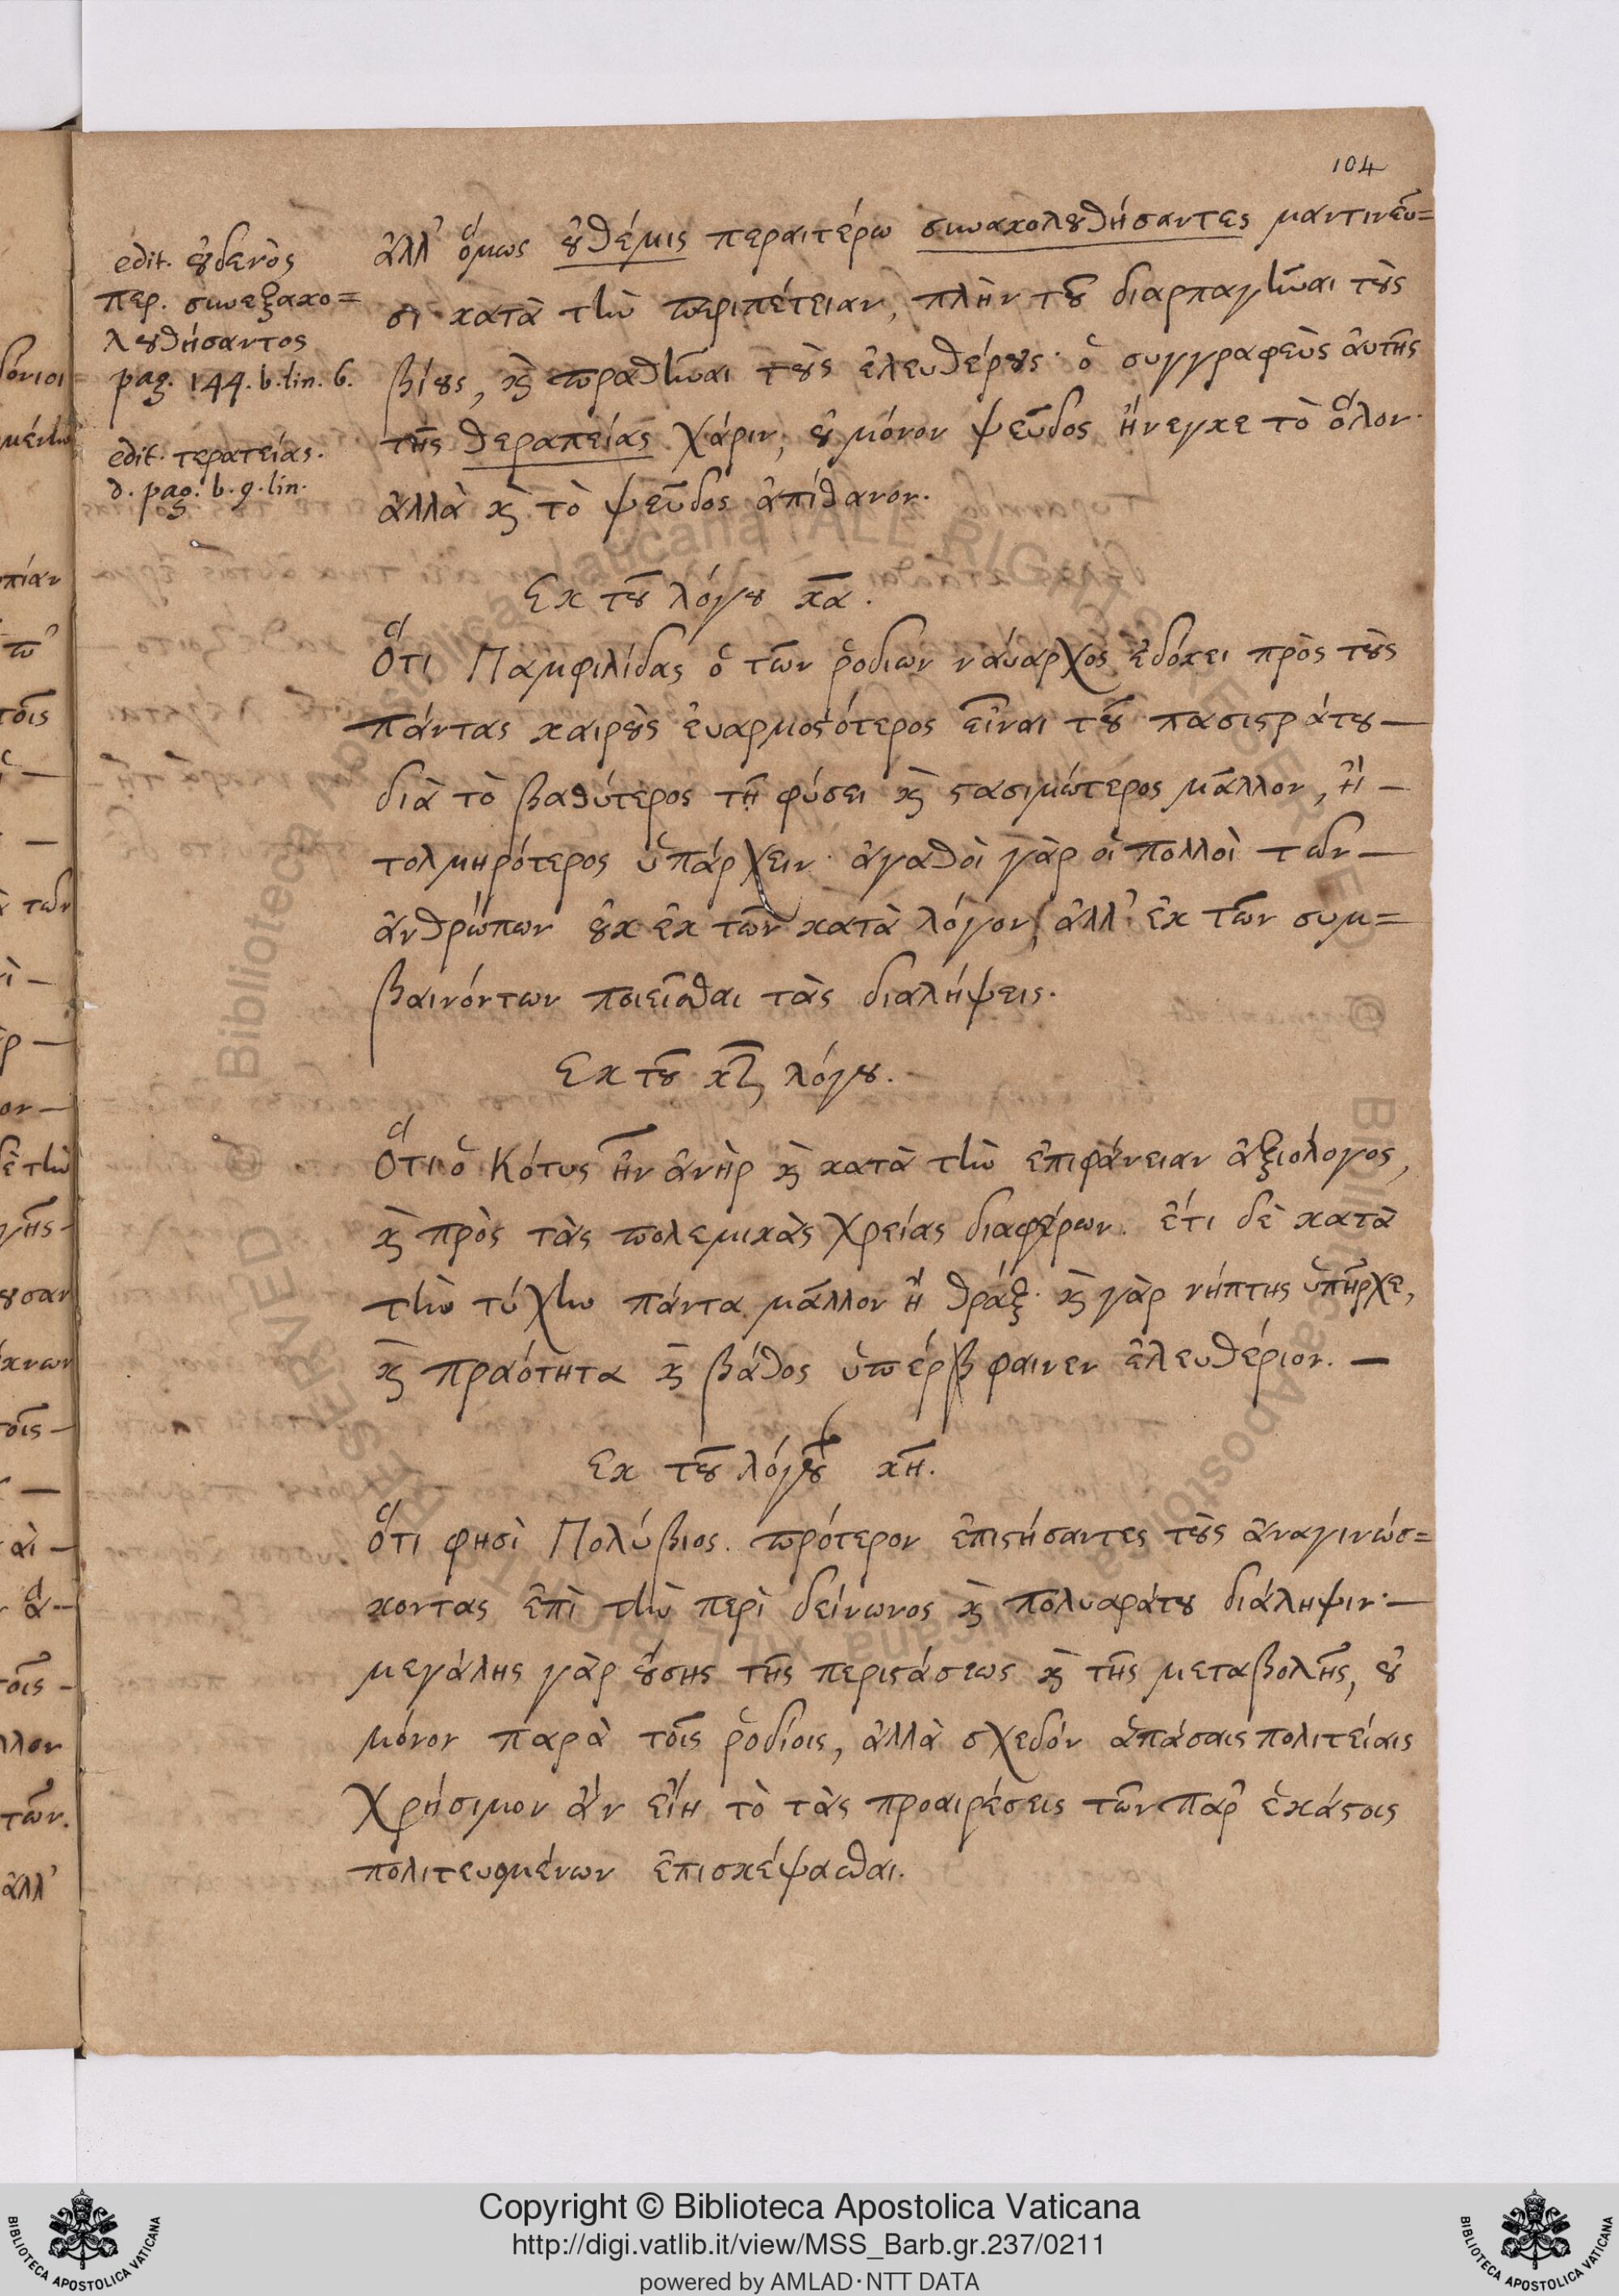 104
ἀλλ' ὅμως ȣ̓θέμις περαιτέρω συνακολȣθήσαντες μαντινεῦ=
σι κατὰ τὴν περιπέτειαν, πλὴν τȣ͂ διαρπαγῆναι τȣ̀ς
βίȣς, κ̀ πραθῆναι τȣ̀ς ἐλευθέρȣς· ὁ συγγραφεὺς ἀυτῆς
τῆς θεραπείας χάριν, ȣ̓ μόνον ψεῦδος ἤνεγκε τὸ ὅλον·
ἀλλὰ κ̀ τὸ ψεῦδος ἀπίθανον.
edit. ȣ̓δενὸς
περ. συνεξακο=
λȣθήσαντος
pag. 144. b. lin. 6.
edit. τερατείας.
d. pag. b. 9. lin.
Εκ τȣ͂ λόγȣ κα.
Ὅτι Παμφιλίδας ὁ τῶν ῥοδιων νάυαρχος ἐδόκει πρὸς τȣ̀ς
πάντας καιρȣ̀ς ἐυαρμοϛότερος εἶναι τȣ͂ πασιϛράτȣ —
διὰ τὸ βαθύτερος τῇ φύσει κ̀ ϛασιμώτερος μᾶλλον, ἢ —
τολμηρότερος ὑπάρχειν· ἀγαθοὶ γὰρ οἱ πολλοὶ τῶν —
ἀνθρώπων ȣ̓κ ἐκ τῶν κατὰ λόγον, ἀλλ' ἐκ τῶν συμ=
βαινόντων ποιεῖσθαι τὰς διαλήψεις.
Εκ τȣ͂ κζ λόγȣ.
Ὅτι ὁ Κότυς ἦν ἀνὴρ κ̀ κατὰ τὴν ἐπιφάνειαν ἀξιόλογος,
κ̀ πρὸς τὰς πολεμικὰς χρείας διαφέρων. ἔτι δὲ κατὰ
τὴν τύχην πάντα μᾶλλον ἢ θρᾴξ· κ̀ γὰρ νήπτης ὑπῆρχε,
κ̀ πραότητα κ̀ βάθος ὑπέρβφαινεν ἐλευθέριον. —
Εκ τȣ͂ λόγȣ κη.
Ὅτι φησὶ Πολύβιος. πρότερον ἐπιϛήσαντες τȣ̀ς ἀναγινώσ=
κοντας ἐπὶ τὴν περὶ δείνωνος κ̀ πολυαράτȣ διάληψιν· —
μεγάλης γὰρ ȣ̓́σης τῆς περιϛάσεως κ̀ τῆς μεταβολῆς, ȣ̓
μόνον παρὰ τοῖς ῥοδίοις, ἀλλὰ σχεδόν ἁπάσαις πολιτείαις
χρήσιμον ἂν εἴη τὸ τὰς προαιρέσεις τῶν παρ' ἑκάϛοις
πολιτευομένων ἐπισκέψασθαι.
Copyright © Biblioteca Apostolica Vaticana
http://digi.vatlib.it/view/MSS_Barb.gr.237/0211
powered by AMLAD·NTT DATA
BIBLIOTECA APOSTOLICA VATICANA
BIBLIOTECA APOSTOLICA VATICANA